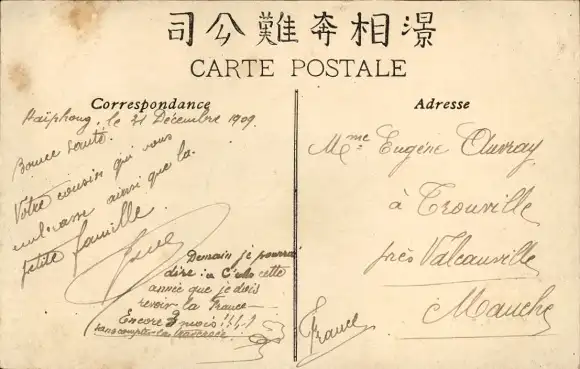 司公難奔相澋
CARTE POSTALE
Correspondance
Haïphong, le 31 Décembre 1909.
Bonne santé.
Votre cousin qui vous
embrasse ainsi que la
petite famille.
Demain je pourrai
dire : "C'est cette
année que je dois
revoir la France —
Encore 3 mois !!!!
sans compter la traversée
Adresse
Mme Eugène Auvray
à Trouville
près Valcanville
Manche
France